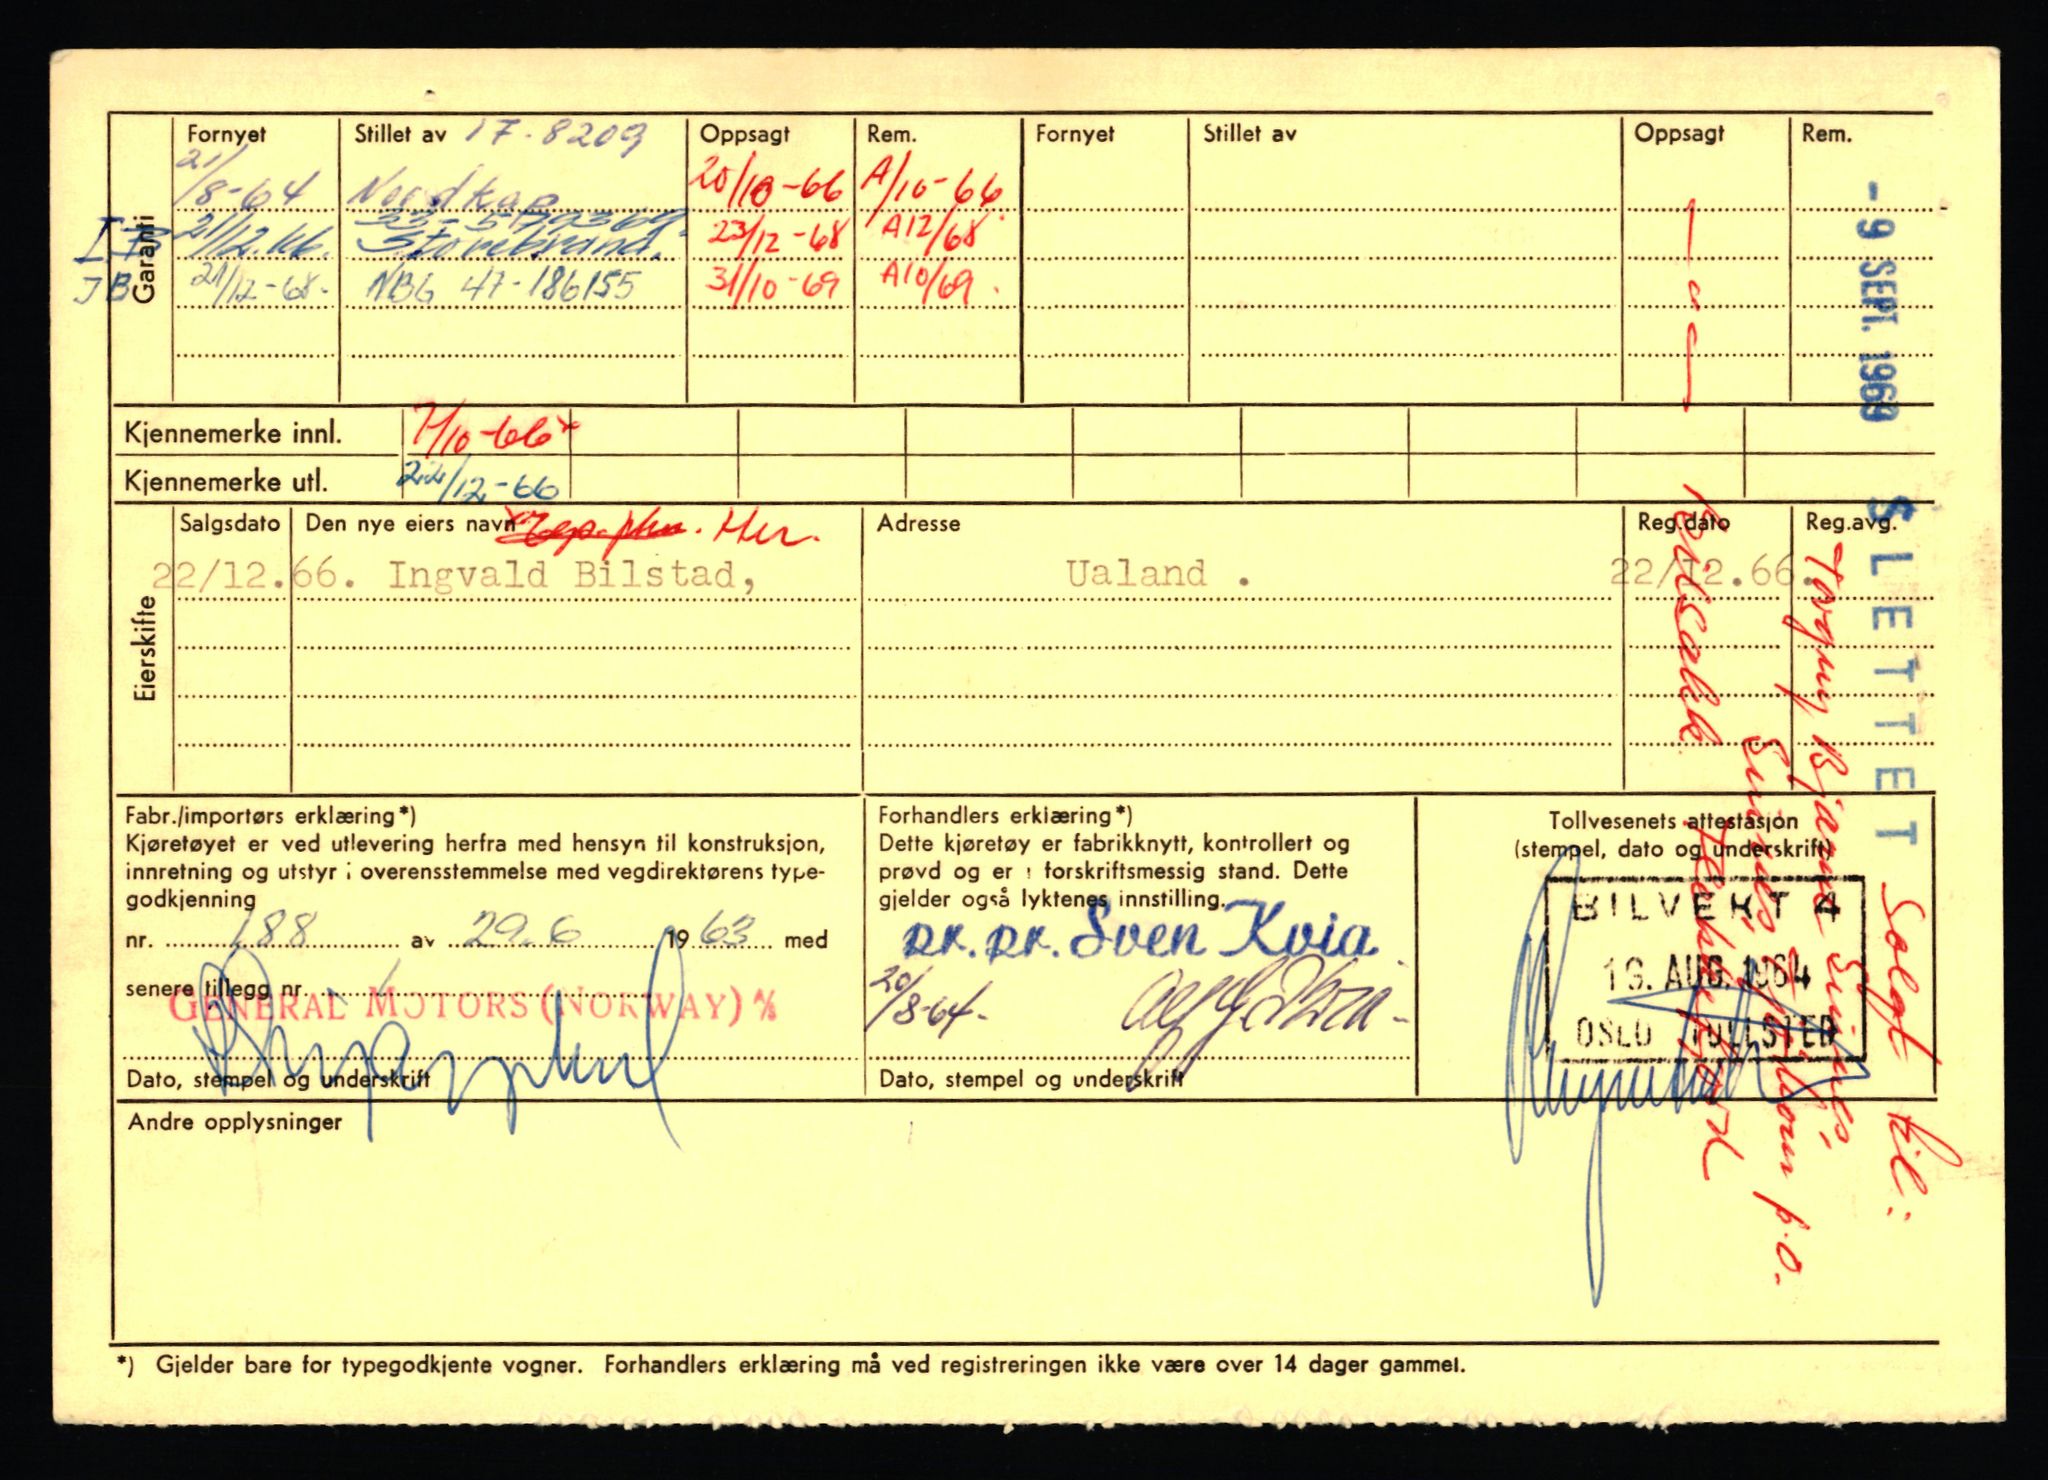 Garanti
Fornyet Stillet av 17-8209 Oppsagt Rem. Fornyet Stillet av Oppsagt Rem.
21/8-64 Nordkap 20/10-66 A/10-66
IB 21/12.66. 33-579369. Storebrand. 23/12-68 A12/68
JB 21/12-68. NBG 47-186155 31/10-69 A10/69.
Kjennemerke innl. 7/10-66x
Kjennemerke utl. 22/12-66
Eierskifte
Salgsdato Den nye eiers navn Adresse Reg.dato Reg.avg.
22/12.66. Ingvald Bilstad, Ualand . 22/12.66.
Fabr./importørs erklæring*)
Kjøretøyet er ved utlevering herfra med hensyn til konstruksjon,
innretning og utstyr i overensstemmelse med vegdirektørens type-
godkjenning
nr. 188 av 29.6 1963 med
senere tillegg nr.
GENERAL MOTORS (NORWAY) A/S
Dato, stempel og underskrift
Forhandlers erklæring*)
Dette kjøretøy er fabrikknytt, kontrollert og
prøvd og er i forskriftsmessig stand. Dette
gjelder også lyktenes innstilling.
pr. pr. Sven Kvia
20/8-64.
Dato, stempel og underskrift
Tollvesenets attestasjon
(stempel, dato og underskrift)
BILVEKT 4
19. AUG. 1964
OSLO TOLLSTED
Andre opplysninger
*) Gjelder bare for typegodkjente vogner. Forhandlers erklæring må ved registreringen ikke være over 14 dager gammel.
- 9 SEPT. 1969 SLETTET
Solgt til:
Torgny Bjarne
p.o.
Bilsakk